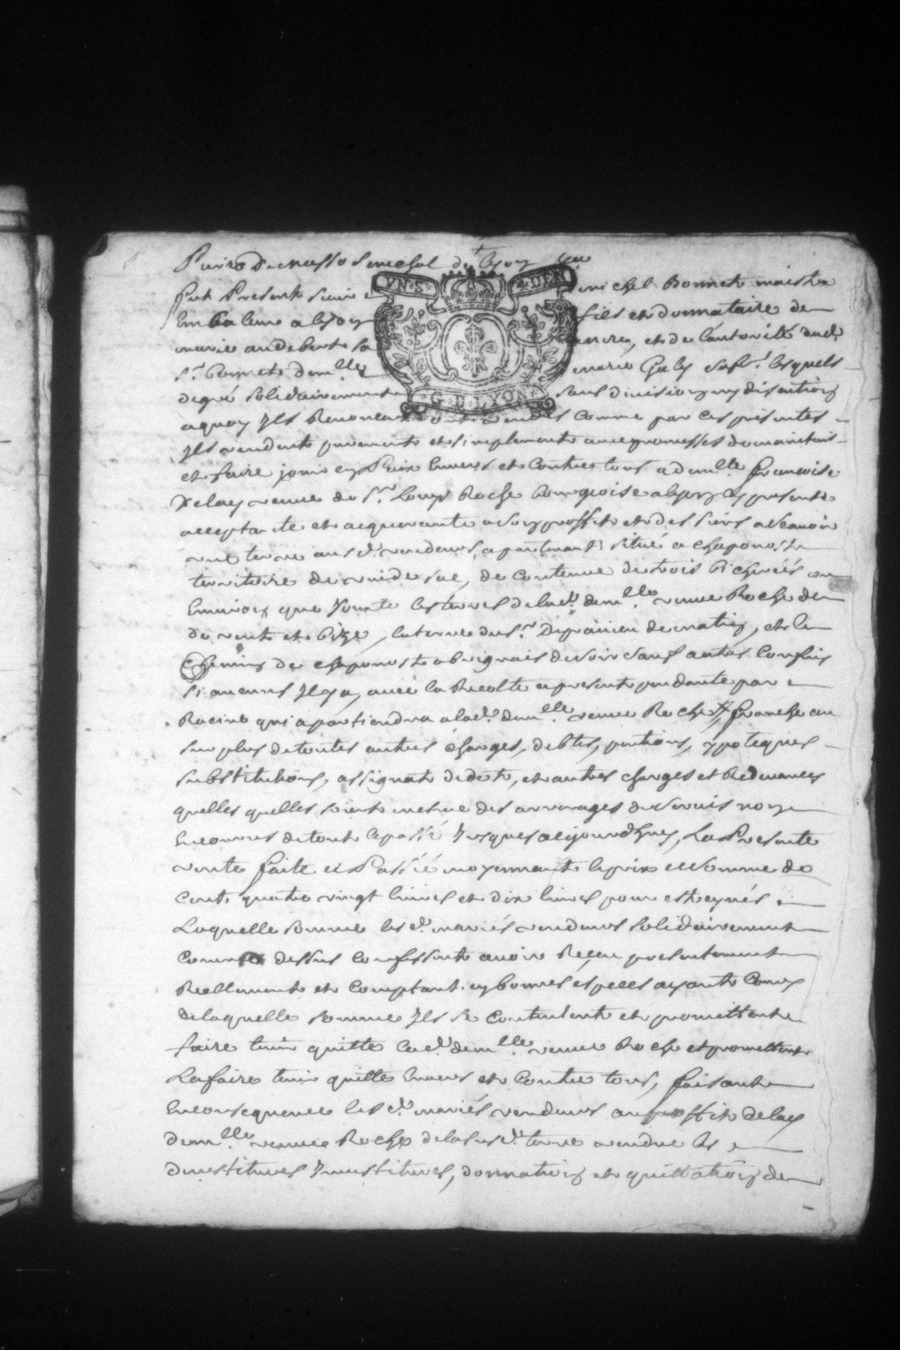 Pardevant senechal de Lyon
VN·S· 4·DEN
Fut Present sieur michel Bonnet maistre
Emballeur a lyon fils et donnataire de
marie audebert sa et de l'autorité dud.
Sr. Bonnet demlle marie Galy lesquels
degré solidairement sans division ny discution
G·D·LYON
aquoy Ils Renoncent vendus comme par ces presentes
Ils vendent purement et simplement avec promesses de maintenir
et faire jouir en Paix Envers et Contre tous a demlle francoise
Delay veuve de Sr. Loup Roche Bourgoise a lyon cy presente
acceptante et acquerante a son proffit et des siens a scavoir
une terre aus d. vendeurs apartenant située a chaponost
territoire de de Contenue de trois Bicherés ou
Environ que Jouxte les terres de lad. demlle veuve Roche de
de vent et bize, la terre du Sr. de matin, et le
Chemin de chaponost a brignais de soir sauf autres Confins
si aucuns Il y a, avec la Recolte a present pendante par
Racine qui apartiendra a lad. demlle veuve Roche, franche au
surplus de toutes autres charges, debtes, pentions, ypoteques
substitutions, assignats de dote, et autres charges et Redevances
quelles quelles soient mesme des arrerages de servis noz
Encourus de tout le passé Jusques a ce jourdhuy, La Presente
vente faite et Passée moyennant le prix et somme de
Cent quatre vingt livres et dix livres pour estreynes
Laquelle somme les d. mariés vendeurs solidairement
Comme dessus confessent avoir Reçeu presentement
Reellement et Comptant en bonnes especes ayants Cours
de laquelle somme Ils se Contentent et promettent
faire tenir quitte lad. demlle veuve Roche et promettent
La faire tenir quitte Envers et Contre tous, faisant
En consequence les d. mariés vendeurs au proffit de lad.
demlle veuve Roche de la susd. terre vendue les
devestitures Investitures, donnation et quittation de